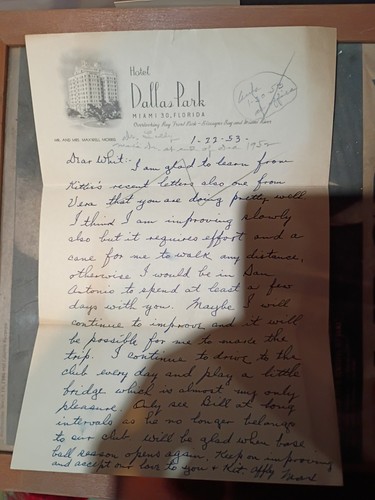 Hotel
Dallas Park
MIAMI 30, FLORIDA
Overlooking Bay Front Park - Biscayne Bay and Miami
MR. AND MRS. MAXWELL
1-30-53
1-22-53-
1952
Dear Whit:- I am glad to learn from
Kittie's recent letters also one from
Vera that you are doing pretty well
I think I am improving slowly
also but it requires effort and a
cane for me to walk any distance,
otherwise I would be in San
Antonio to spend at least a few
days with you. Maybe I will
continue to improve and it will
be possible for me to make the
trip. I continue to down to the
club every day and play a little
bridge which is almost my only
pleasure. Only see Bill at long
intervals as he no longer belongs
to our club will be glad when base
ball season opens again. Keep on improving
and accept our love to you & Kit